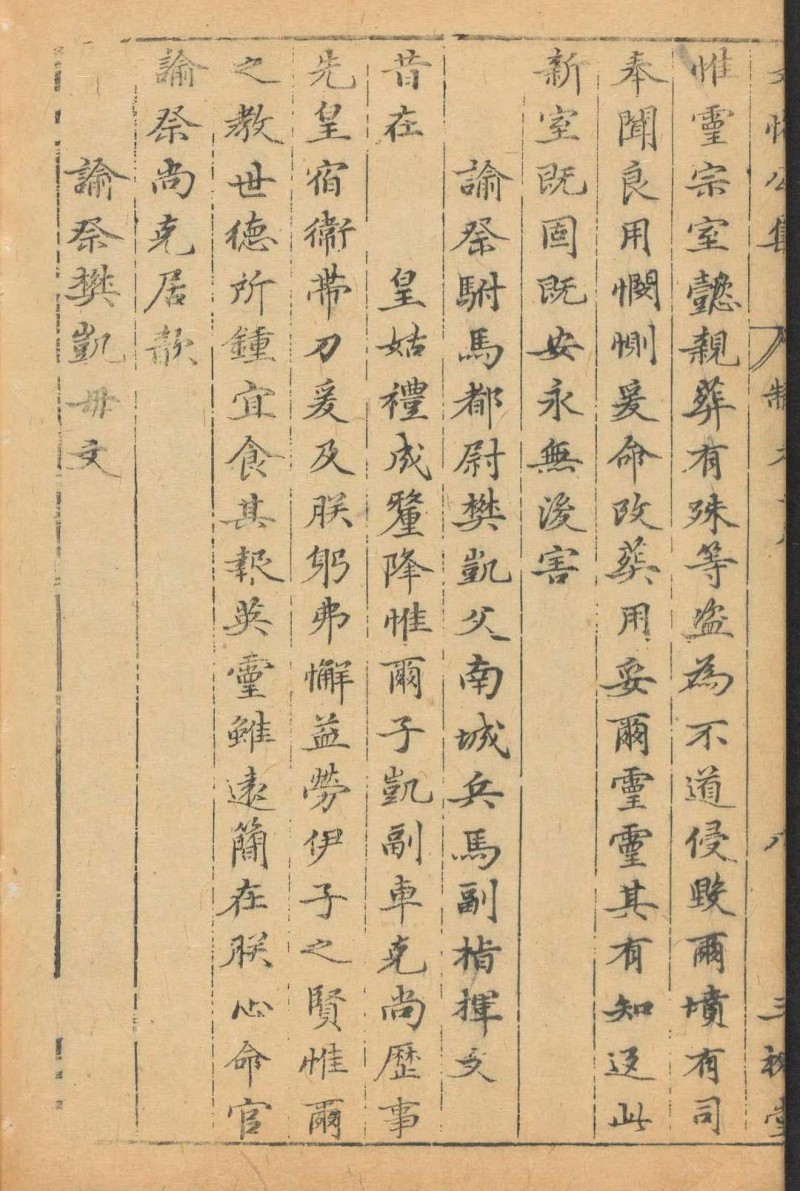 惟靈宗室懿親葬有殊等盜為不道侵毀爾墳有司
奉聞良用憫惻爰命改葬用妥爾靈靈其有知迓此
新室既固既安永無後害
諭祭駙馬都尉樊凱父南城兵馬副指揮文
昔在 皇姑禮成釐降惟爾子凱副車克尚歷事
先皇宿衛帶刀爰及朕躬弗懈益勞伊子之賢惟爾
之教世德所鍾宜食其報英靈雖遠簡在朕心命官
諭祭尚克居歆
諭祭樊凱母文